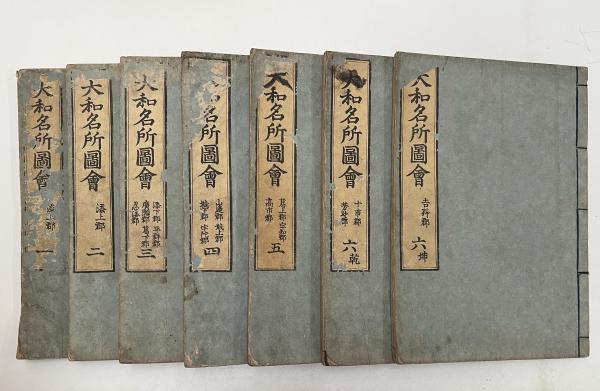 大和名所圖會
添上郡
一
大和名所圖會
添上郡
二
大和名所圖會
添下郡 平群郡
廣瀬郡 葛下郡
忍海郡
三
名所圖會
山邊郡 城上郡
城下郡 宇陀郡
四
大和名所圖會
葛上郡 宇智郡
高市郡
五
大和名所圖會
十市郡
六乾
大和名所圖會
吉野郡
六坤